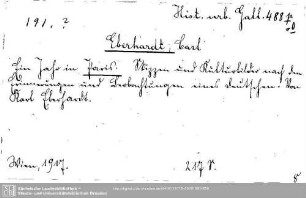 Hist. urb. Gall. 488
191. ?
Eberhardt, Carl
Ein Jahr in Paris. Skizzen und Kulturbilder nach den
Erinnerungen und Beobachtungen eines Deutschen. Von
Karl Eberhardt.
Wien, 1917.
217 S.
8°
Sächsische Landesbibliothek –
Staats- und Universitätsbibliothek Dresden